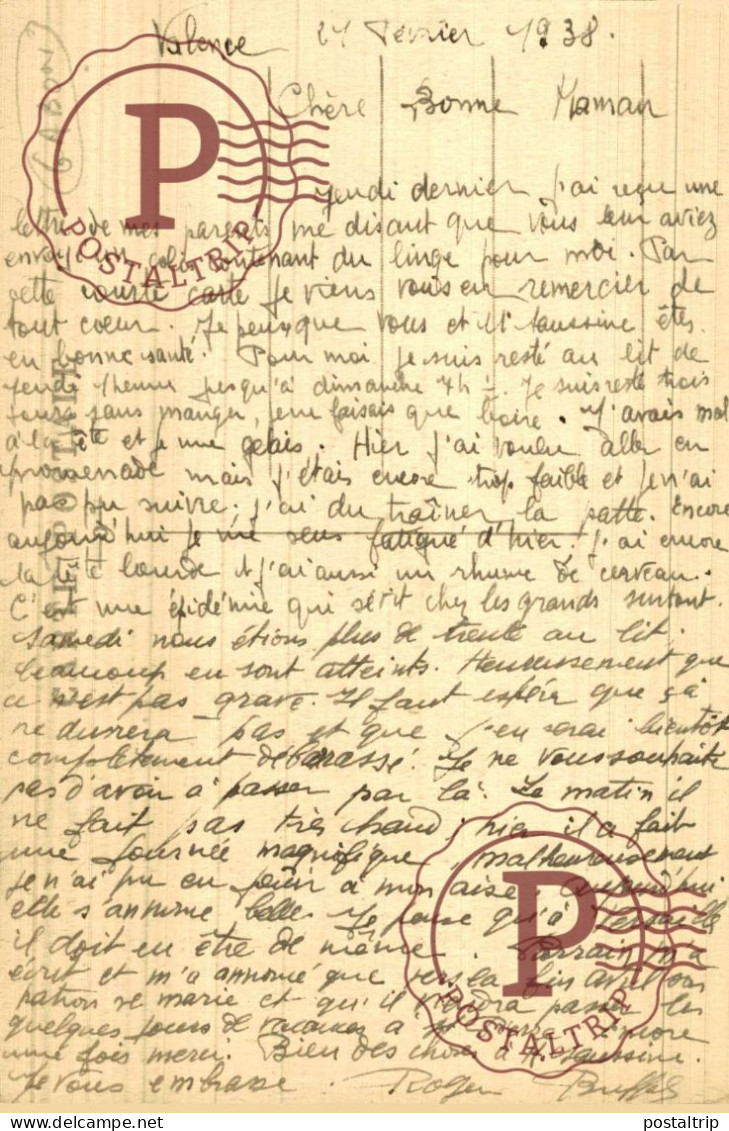 Valence 21 Février 1938.
GABON
Chère Bonne Maman
Jeudi dernier j'ai reçu une
lettre de mes parents me disant que vous leur aviez
envoyé un colis contenant du linge pour moi. Par
cette courte carte je viens vous en remercier de
tout coeur. Je pense que vous et Saussine êtes
en bonne santé. Pour moi je suis resté au lit de
jeudi 1 heure jusqu'à dimanche 4h ½. Je suis resté trois
jours sans manger, je ne faisais que boire. J'avais mal
à la tête et je me gelais. Hier j'ai voulu aller en
promenade mais j'étais encore trop faible et je n'ai
pas pu suivre, j'ai du traîner la patte. Encore
aujourd'hui je me sens fatigué d'hier. J'ai encore
la tête lourde et j'ai aussi un rhume de cerveau.
C'est une épidémie qui sévit chez les grands surtout.
Samedi nous étions plus de trente au lit.
beaucoup en sont atteints. Heureusement que
ce n'est pas grave. Il faut espérer que çà
ne durera pas et que j'en serai bientôt
complètement débarassé. Je ne vous souhaite
pas d'avoir à passer par là. Le matin il
ne fait pas très chaud; hier il a fait
une journée magnifique, malheureusement
je n'ai pu en jouir à mon aise. Aujourd'hui
elle s'annonce belle. Je pense qu'à
il doit en être de même. Parrain m'a
écrit et m'a annoncé que vers la fin avril son
patron se marie et qu'il viendra passer les
quelques jours de vacances à Encore
une fois merci. Bien des choses à Saussine.
Je vous embrasse. Roger
P
POSTALTRIP
P
POSTALTRIP
postaltrip
postaltrip